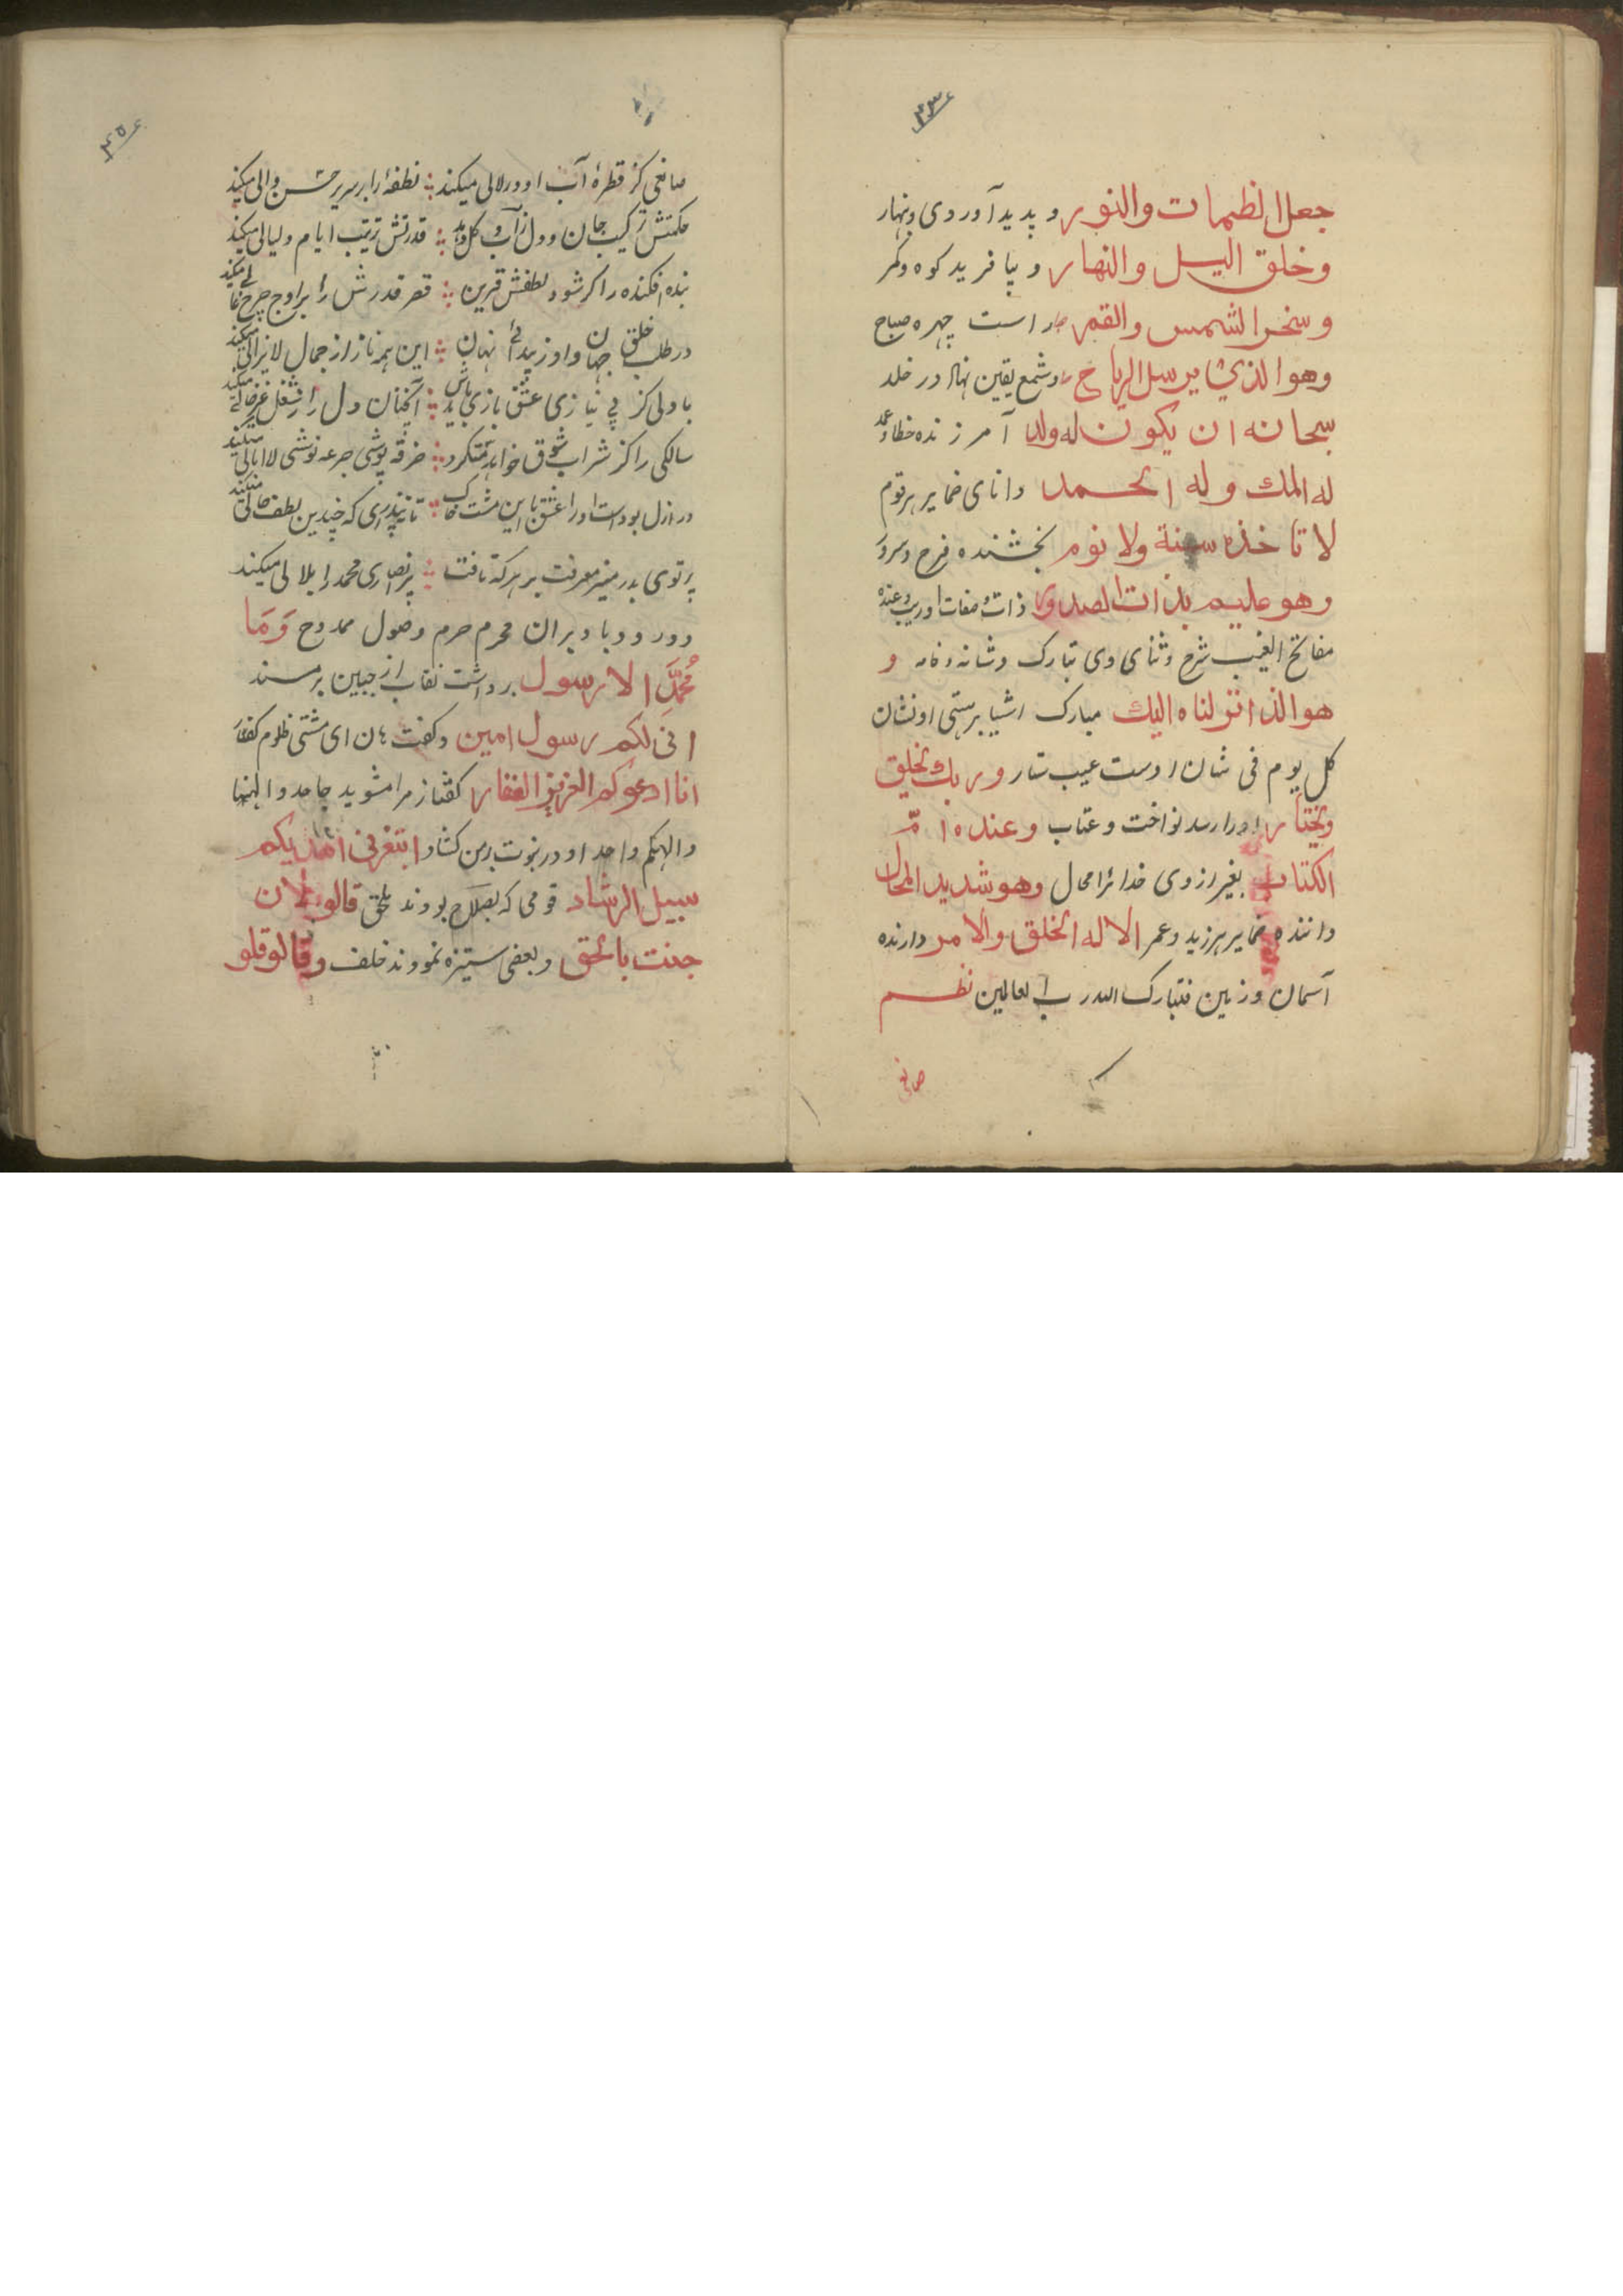 جعل الظلمات والنور و پدید آورد دی و نهار
وخلق اللیل والنهار و بیافرید کوه و کمر
وسخر الشمس والقمر است چهره صباح
وهو الذی یرسل الریاح شمع یقین نهاد در خلد
سبحانه ان یکون له ولد آمرزنده خطا و عمد
له الملک وله الحمد دانای ضمایر هر قوم
لا تاخذه سنة ولا نوم بخشنده فرح و سرور
وهو علیم بذات الصدور ذات و صفات او ریب وعنده
مفاتح الغیب شرح و ثنای وی تبارک و
هو الذ انزلناه الیک مبارک اشیا بر هستی او نشان
کل یوم فی شان اوست عیب ستار وربک یخلق
ویختار او را رسد نواخت و عتاب وعنده امّ
الکتاب بغیر از وی خدائرا محال وهو شدید المحال
داننده ضمایر هر زید و عمر الا له الخلق والامر دارنده
آسمان و زمین فتبارک الله رب العالمین نظم
صانعی
صانعی کز قطرهٔ آب او در لالی میکند نطفهٔ را بر سریر حسن والی میکند
حکمتش ترکیب جان و دل ز آب و گل دهد قدرتش ترتیب ایام و لیالی میکند
بنده افکنده را گر شود لطفش قرین قصر قدرش را بر اوج چرخ عالی میکند
در طلب خلق جهان و او ز پیدائی نهان این همه ناز از جمال لایزالی میکند
با دلی کز بی نیازی عشق بازی آنچنان دل را ز شغل غیر خالی میکند
سالکی را کز شراب شوق خواهد مست کرد خرقه پوشی جرعه نوشی لاابالی میکند
در ازل بودست او را عشق با این مشت خاک تا نپنداری که چندین لطف حالی میکند
پرتوی بدر منیر معرفت بر هر که تافت محمد را بلالی میکند
درود باد بر آن محرم حرم وصول ممدوح وَمَا
مُحَمَّدٌ الا رسول برداشت نقاب از جبین بر مسند
انی لکم رسول امین و گفت هان ای مشتی ظلوم کفار
انا ادعوکم العزیز الغفار گفتا ز مرا مشوید جاحد و الهنا
والهکم واحد او در نبوت بر من کشاد اتبعونی اهدیکم
سبیل الرشاد قومی که بصلاح بودند ملحق قالوا الان
جئت بالحق و بعضی ستیزه نمودند خلف وقالو قلو